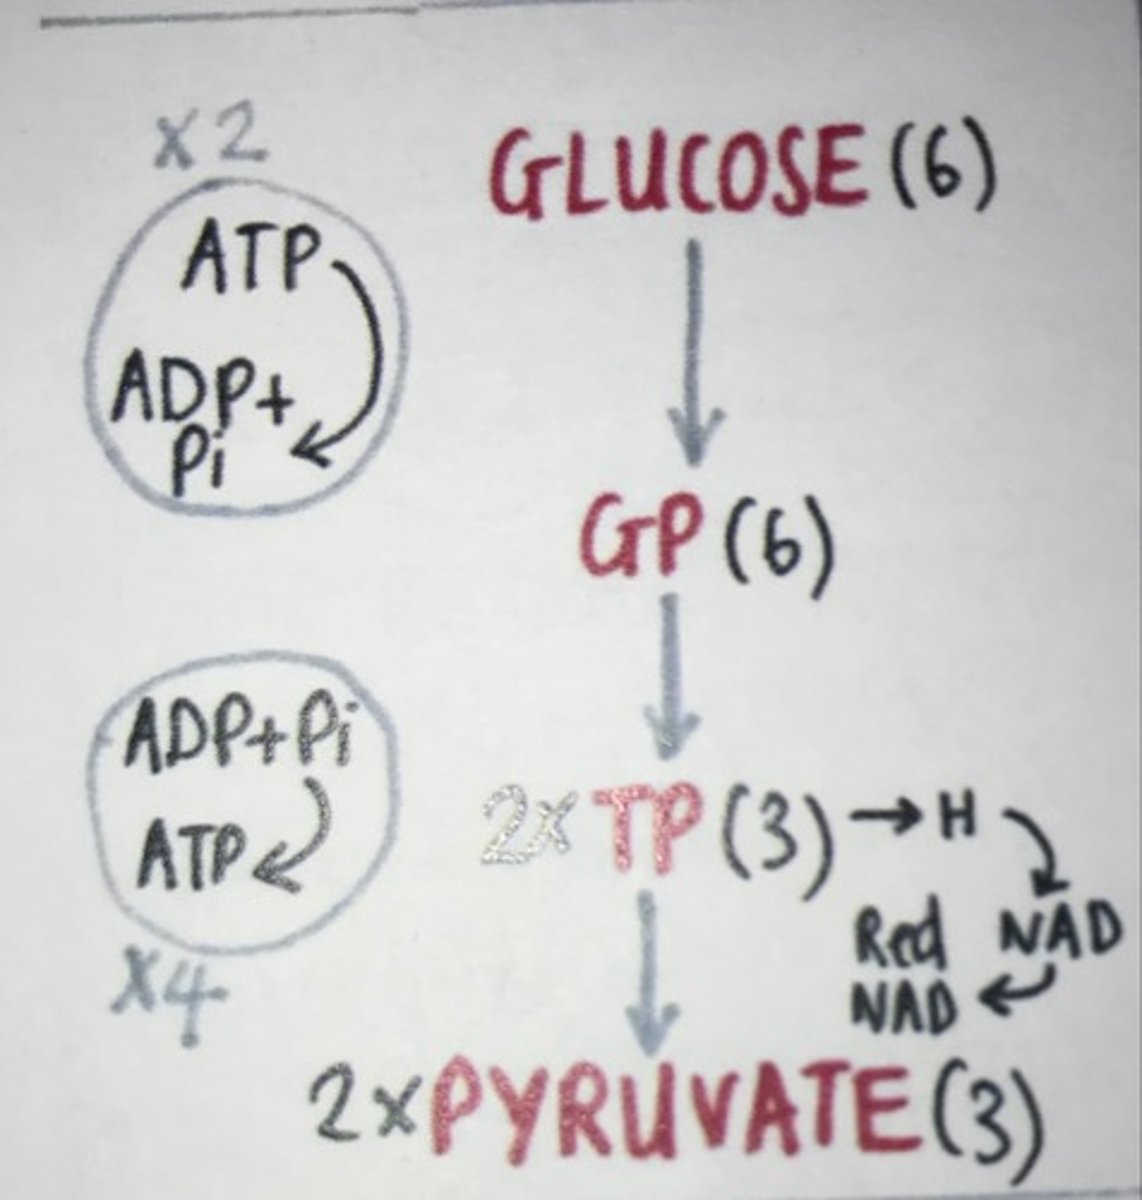 x2
GLUCOSE (6)
ATP
ADP+
Pi
GP (6)
ADP+Pi
ATP
x4
2x TP (3) → H
Red NAD
NAD
2x PYRUVATE (3)